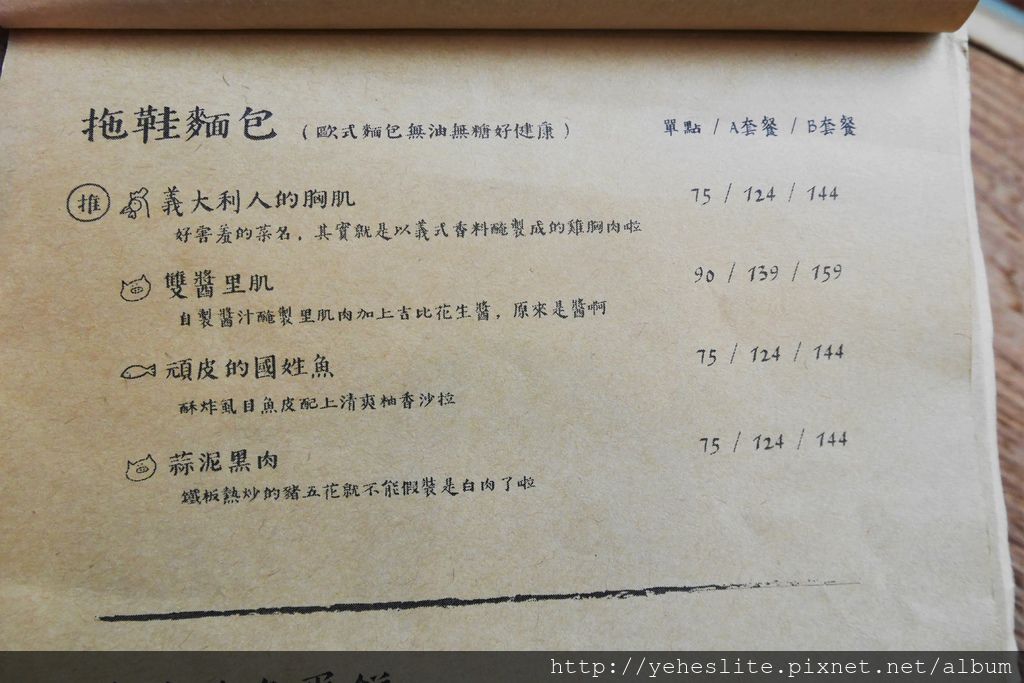 拖鞋麵包 (歐式麵包無油無糖好健康) 單點 / A套餐 / B套餐
推 義大利人的胸肌 75 / 124 / 144
好害羞的菜名，其實就是以義式香料醃製成的雞胸肉啦
雙醬里肌 90 / 139 / 159
自製醬汁醃製里肌肉加上吉比花生醬，原來是醬啊
頑皮的國姓魚 75 / 124 / 144
酥炸虱目魚皮配上清爽柚香沙拉
蒜泥黑肉 75 / 124 / 144
鐵板熱炒的豬五花就不能假裝是白肉了啦
http://yeheslite.pixnet.net/album